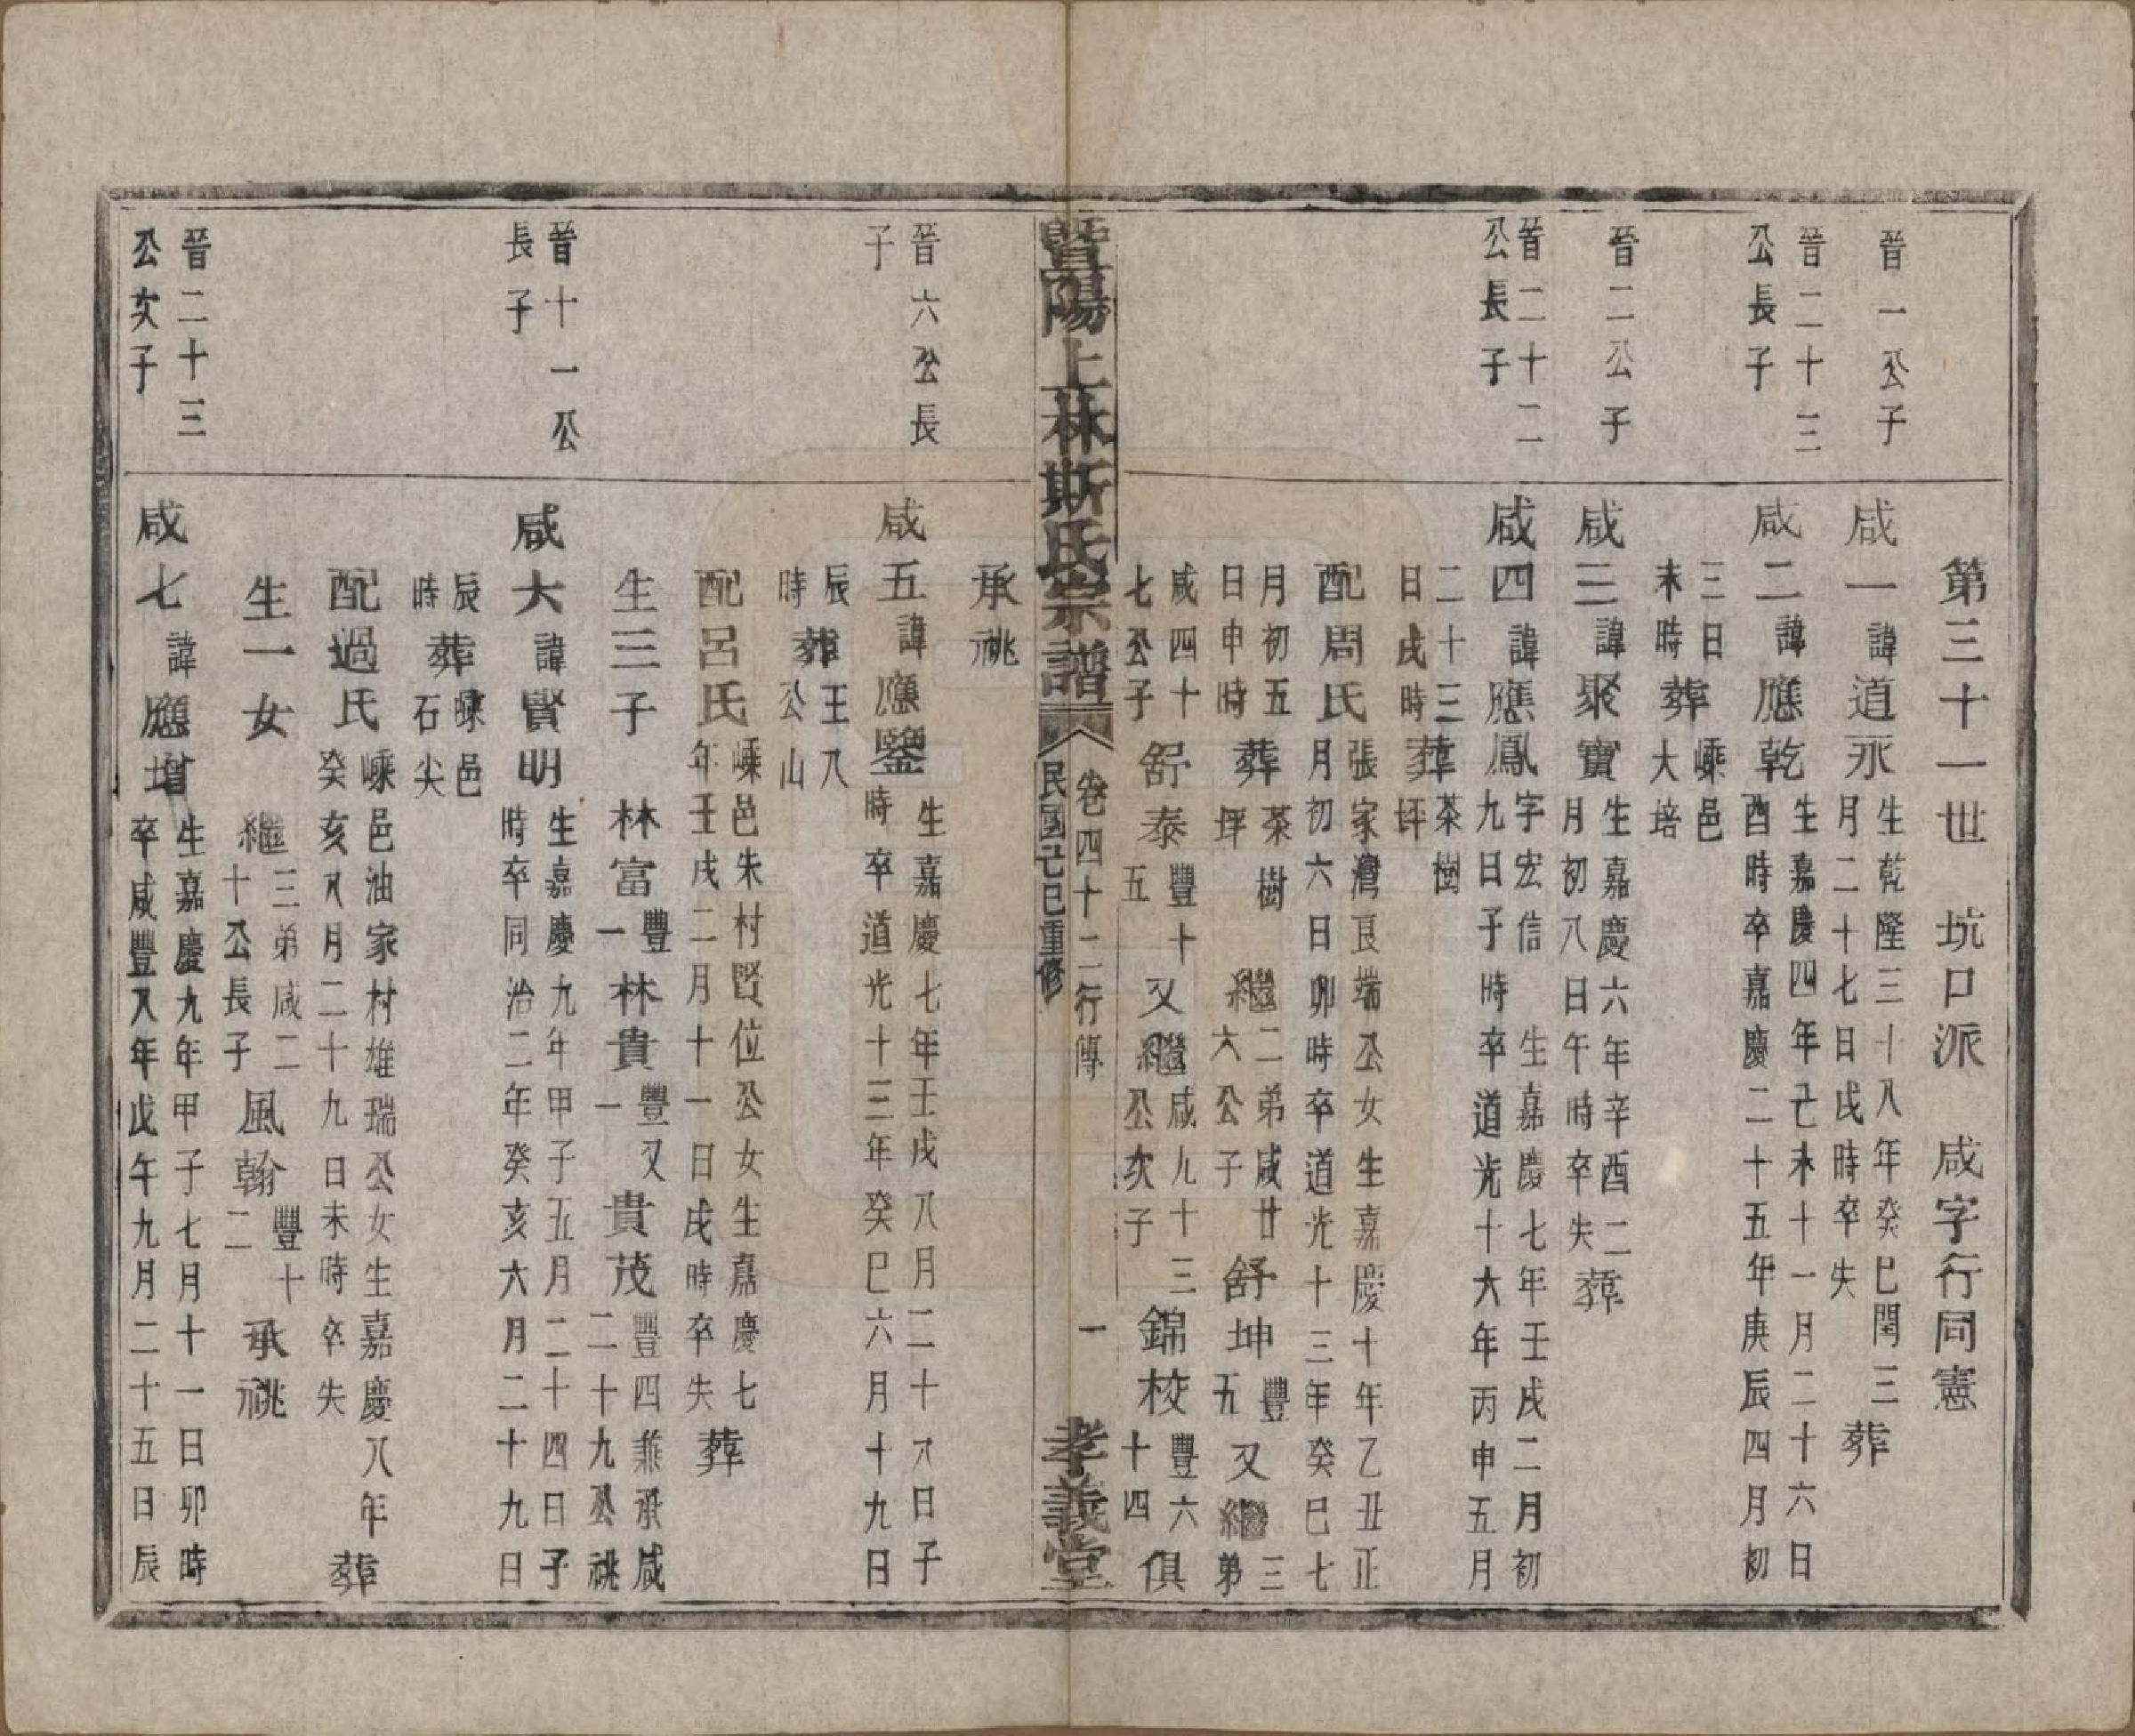 第三十一世 坑口派 咸字行同憲
晉一公子
咸一諱道永生乾隆三十八年癸巳閏三
月二十七日戌時卒失葬
晉二十三
公長子
咸二諱應乾生嘉慶四年己未十一月二十六日
酉時卒嘉慶二十五年庚辰四月初
三日
未時葬嵊邑
大培
晉二公子
咸三諱聚寶生嘉慶六年辛酉二
月初八日午時卒失葬
晉二十二
公長子
咸四諱應鳳字宏信 生嘉慶七年壬戌二月初
九日子時卒道光十六年丙申五月
二十三
日戌時葬茶樹
坪
配周氏張家灣良端公女生嘉慶十年乙丑正
月初六日卯時卒道光十三年癸巳七
月初五
日申時葬茶樹
坪 繼二弟咸廿
六公子舒坤豐
五又繼三
弟
咸四十
七公子舒泰豐十
五又繼咸九十三
公次子錦校豐六
十四俱
承祧
暨陽上林斯氏宗譜
卷四十二行傳
民國己巳重修
一
孝義堂
晉六公長
子
咸五諱應鑒生嘉慶七年壬戌八月二十八日子
時卒道光十三年癸巳六月十九日
辰
時葬王八
公山
配呂氏嵊邑朱村賢位公女生嘉慶七
年壬戌二月十一日戌時卒失葬
生三子 林富豐
一林貴豐
一又貴茂豐四兼承咸
二十九公祧
晉十一公
長子
咸六諱賢明生嘉慶九年甲子五月二十四日子
時卒同治二年癸亥六月二十九日
辰
時葬嵊邑
石尖
配過氏嵊邑油家村雄瑞公女生嘉慶八年
癸亥八月二十九日未時卒失葬
生一女 繼三弟咸二
十公長子風翰豐十
二承祧
晉二十三
公次子
咸七諱應增生嘉慶九年甲子七月十一日卯時
卒咸豐八年戊午九月二十五日辰